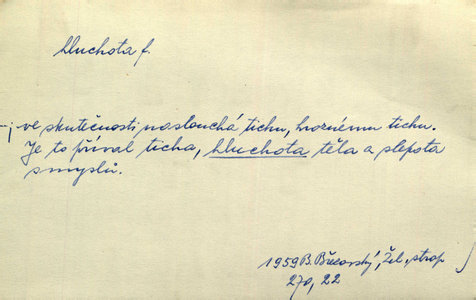 hluchota f.
–; ve skutečnosti naslouchá tichu, hroznému tichu.
Je to příval ticha, hluchota těla a slepota
smyslů.
1959 B. Březovský, Žel. strop
270, 22